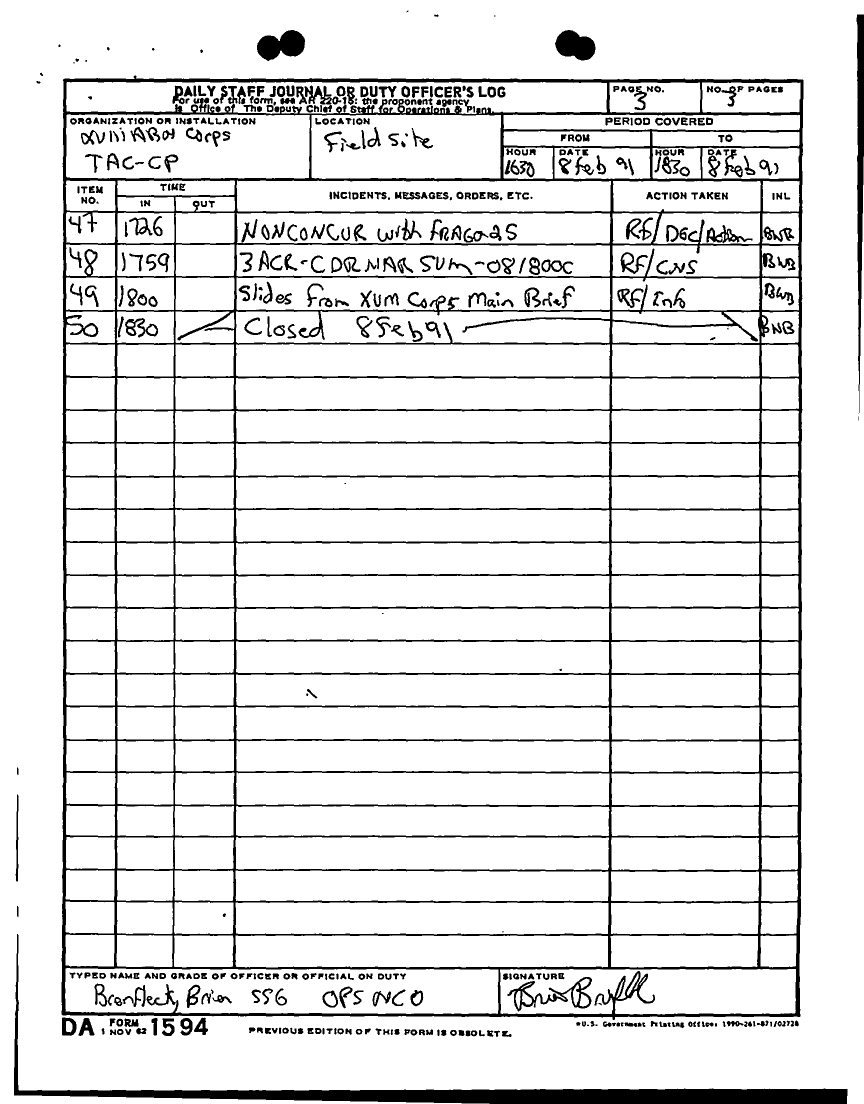 DAILY STAFF JOURNAL OR DUTY OFFICER'S LOG
For use of this form, see AR 220-15: the proponent agency
is Office of The Deputy Chief of Staff for Operations & Plans.
PAGE NO.
3
NO. OF PAGES
3
ORGANIZATION OR INSTALLATION
XVIII ABN Corps
TAC-CP
LOCATION
Field Site
PERIOD COVERED
FROM
TO
HOUR DATE HOUR DATE
1630 8 Feb 91 1830 8 Feb 91
ITEM NO.
TIME
IN OUT
INCIDENTS, MESSAGES, ORDERS, ETC.
ACTION TAKEN
INL
47 1726 NONCONCUR with FRAGO-25 RF/ Action BNB
48 1759 3 ACR-CDR NAR SUM-08/800C RF/CNS BNB
49 1800 Slides From XVIII Corps Main Brief RF/Info BNB
50 1830 Closed 8 Feb 91 BNB
TYPED NAME AND GRADE OF OFFICER OR OFFICIAL ON DUTY
Brian SSG OPS NCO
SIGNATURE
DA FORM 1594
1 NOV 62
PREVIOUS EDITION OF THIS FORM IS OBSOLETE.
*U.S. Government Printing Office: 1990-261-871/02728